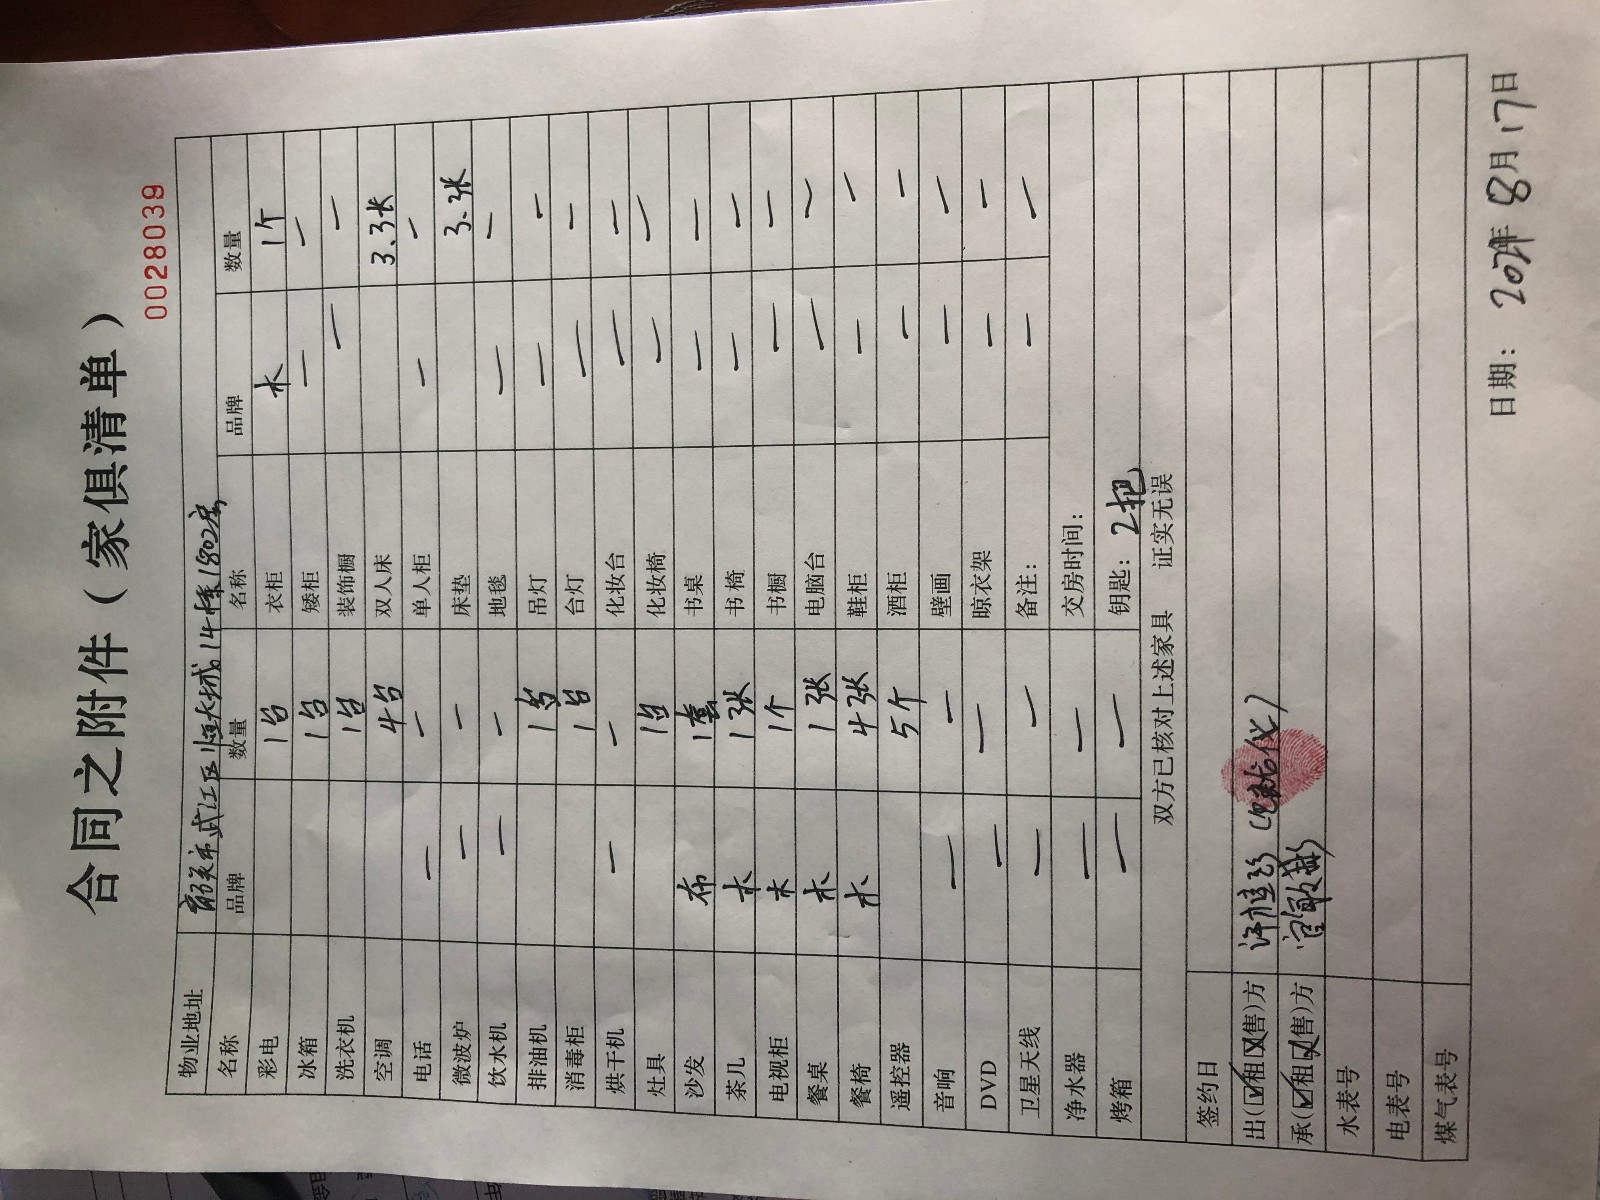 合同之附件（家俱清单）
0028039
物业地址 韶关市武江区恒大城14栋1802房
名称 品牌 数量 名称 品牌 数量
彩电 1台 衣柜 木 1个
冰箱 1台 矮柜 — —
洗衣机 1台 装饰橱 — —
空调 4台 双人床 3.3张
电话 — — 单人柜 — —
微波炉 — — 床垫 3.3张
饮水机 — — 地毯 — —
排油机 1台 吊灯 — —
消毒柜 1台 台灯 — —
烘干机 — — 化妆台 — —
灶具 1台 化妆椅 — —
沙发 布 1套 书桌 — —
茶几 木 1张 书椅 — —
电视柜 木 1个 书橱 — —
餐桌 木 1张 电脑台 — —
餐椅 木 4张 鞋柜 — —
遥控器 5个 酒柜 — —
音响 — — 壁画 — —
DVD — — 晾衣架 — —
卫星天线 — — 备注： — —
净水器 — — 交房时间：
烤箱 — — 钥匙：2把
双方已核对上述家具 证实无误
签约日
出(☑租☒售)方
承(☑租☒售)方
水表号
电表号
煤气表号
日期： 2021年 8月17日